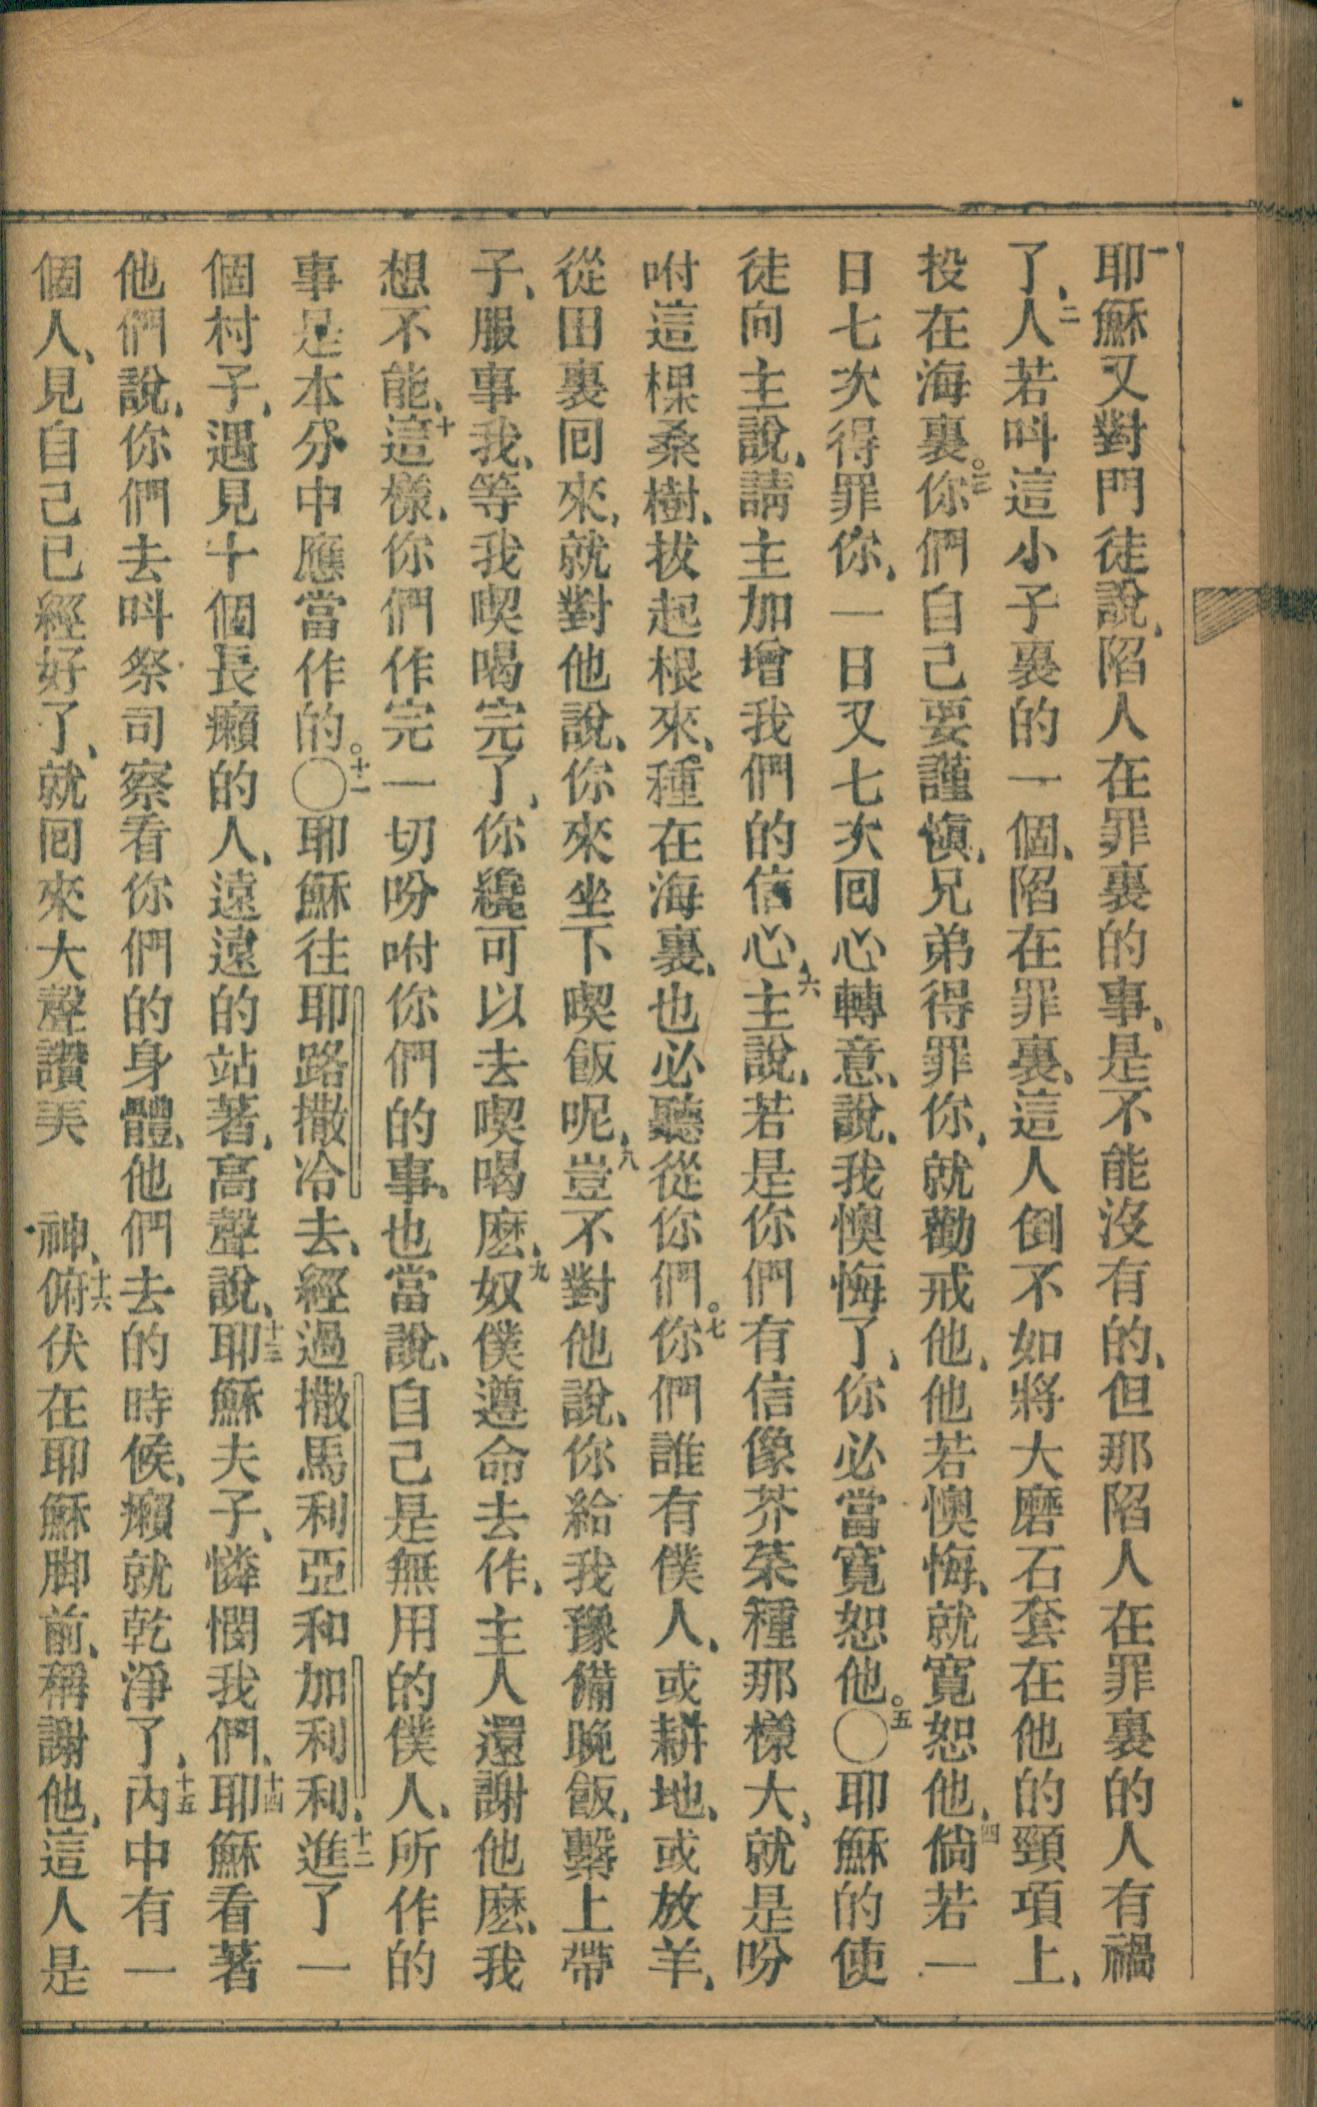 一耶穌又對門徒說、陷人在罪裏的事、是不能沒有的、但那陷人在罪裏的人有禍
了、二人若呌這小子裏的一個、陷在罪裏、這人倒不如將大磨石套在他的頸項上、
投在海裏。三你們自己要謹愼、兄弟得罪你、就勸戒他、他若懊悔、就寬恕他、四倘若一
日七次得罪你、一日又七次囘心轉意、說、我懊悔了、你必當寬恕他。五〇耶穌的使
徒向主說、請主加增我們的信心、六主說、若是你們有信像芥菜種那樣大、就是吩
咐這棵桑樹、拔起根來、種在海裏、也必聽從你們。七你們誰有僕人、或耕地、或放羊、
從田裏囘來、就對他說、你來坐下喫飯呢、八豈不對他說、你給我豫備晚飯、繫上帶
子、服事我、等我喫喝完了、你纔可以去喫喝麽、九奴僕遵命去作、主人還謝他麽、我
想不能、十這樣、你們作完一切吩咐你們的事、也當說、自己是無用的僕人、所作的
事是本分中應當作的。十一〇耶穌往耶路撒冷去、經過撒馬利亞和加利利、十二進了一
個村子、遇見十個長癩的人、遠遠的站著、高聲說、十三耶穌夫子、憐憫我們、十四耶穌看著
他們說、你們去呌祭司察看你們的身體、他們去的時候、癩就乾淨了、十五內中有一
個人、見自己已經好了、就囘來大聲讚美　神、十六俯伏在耶穌脚前、稱謝他、這人是